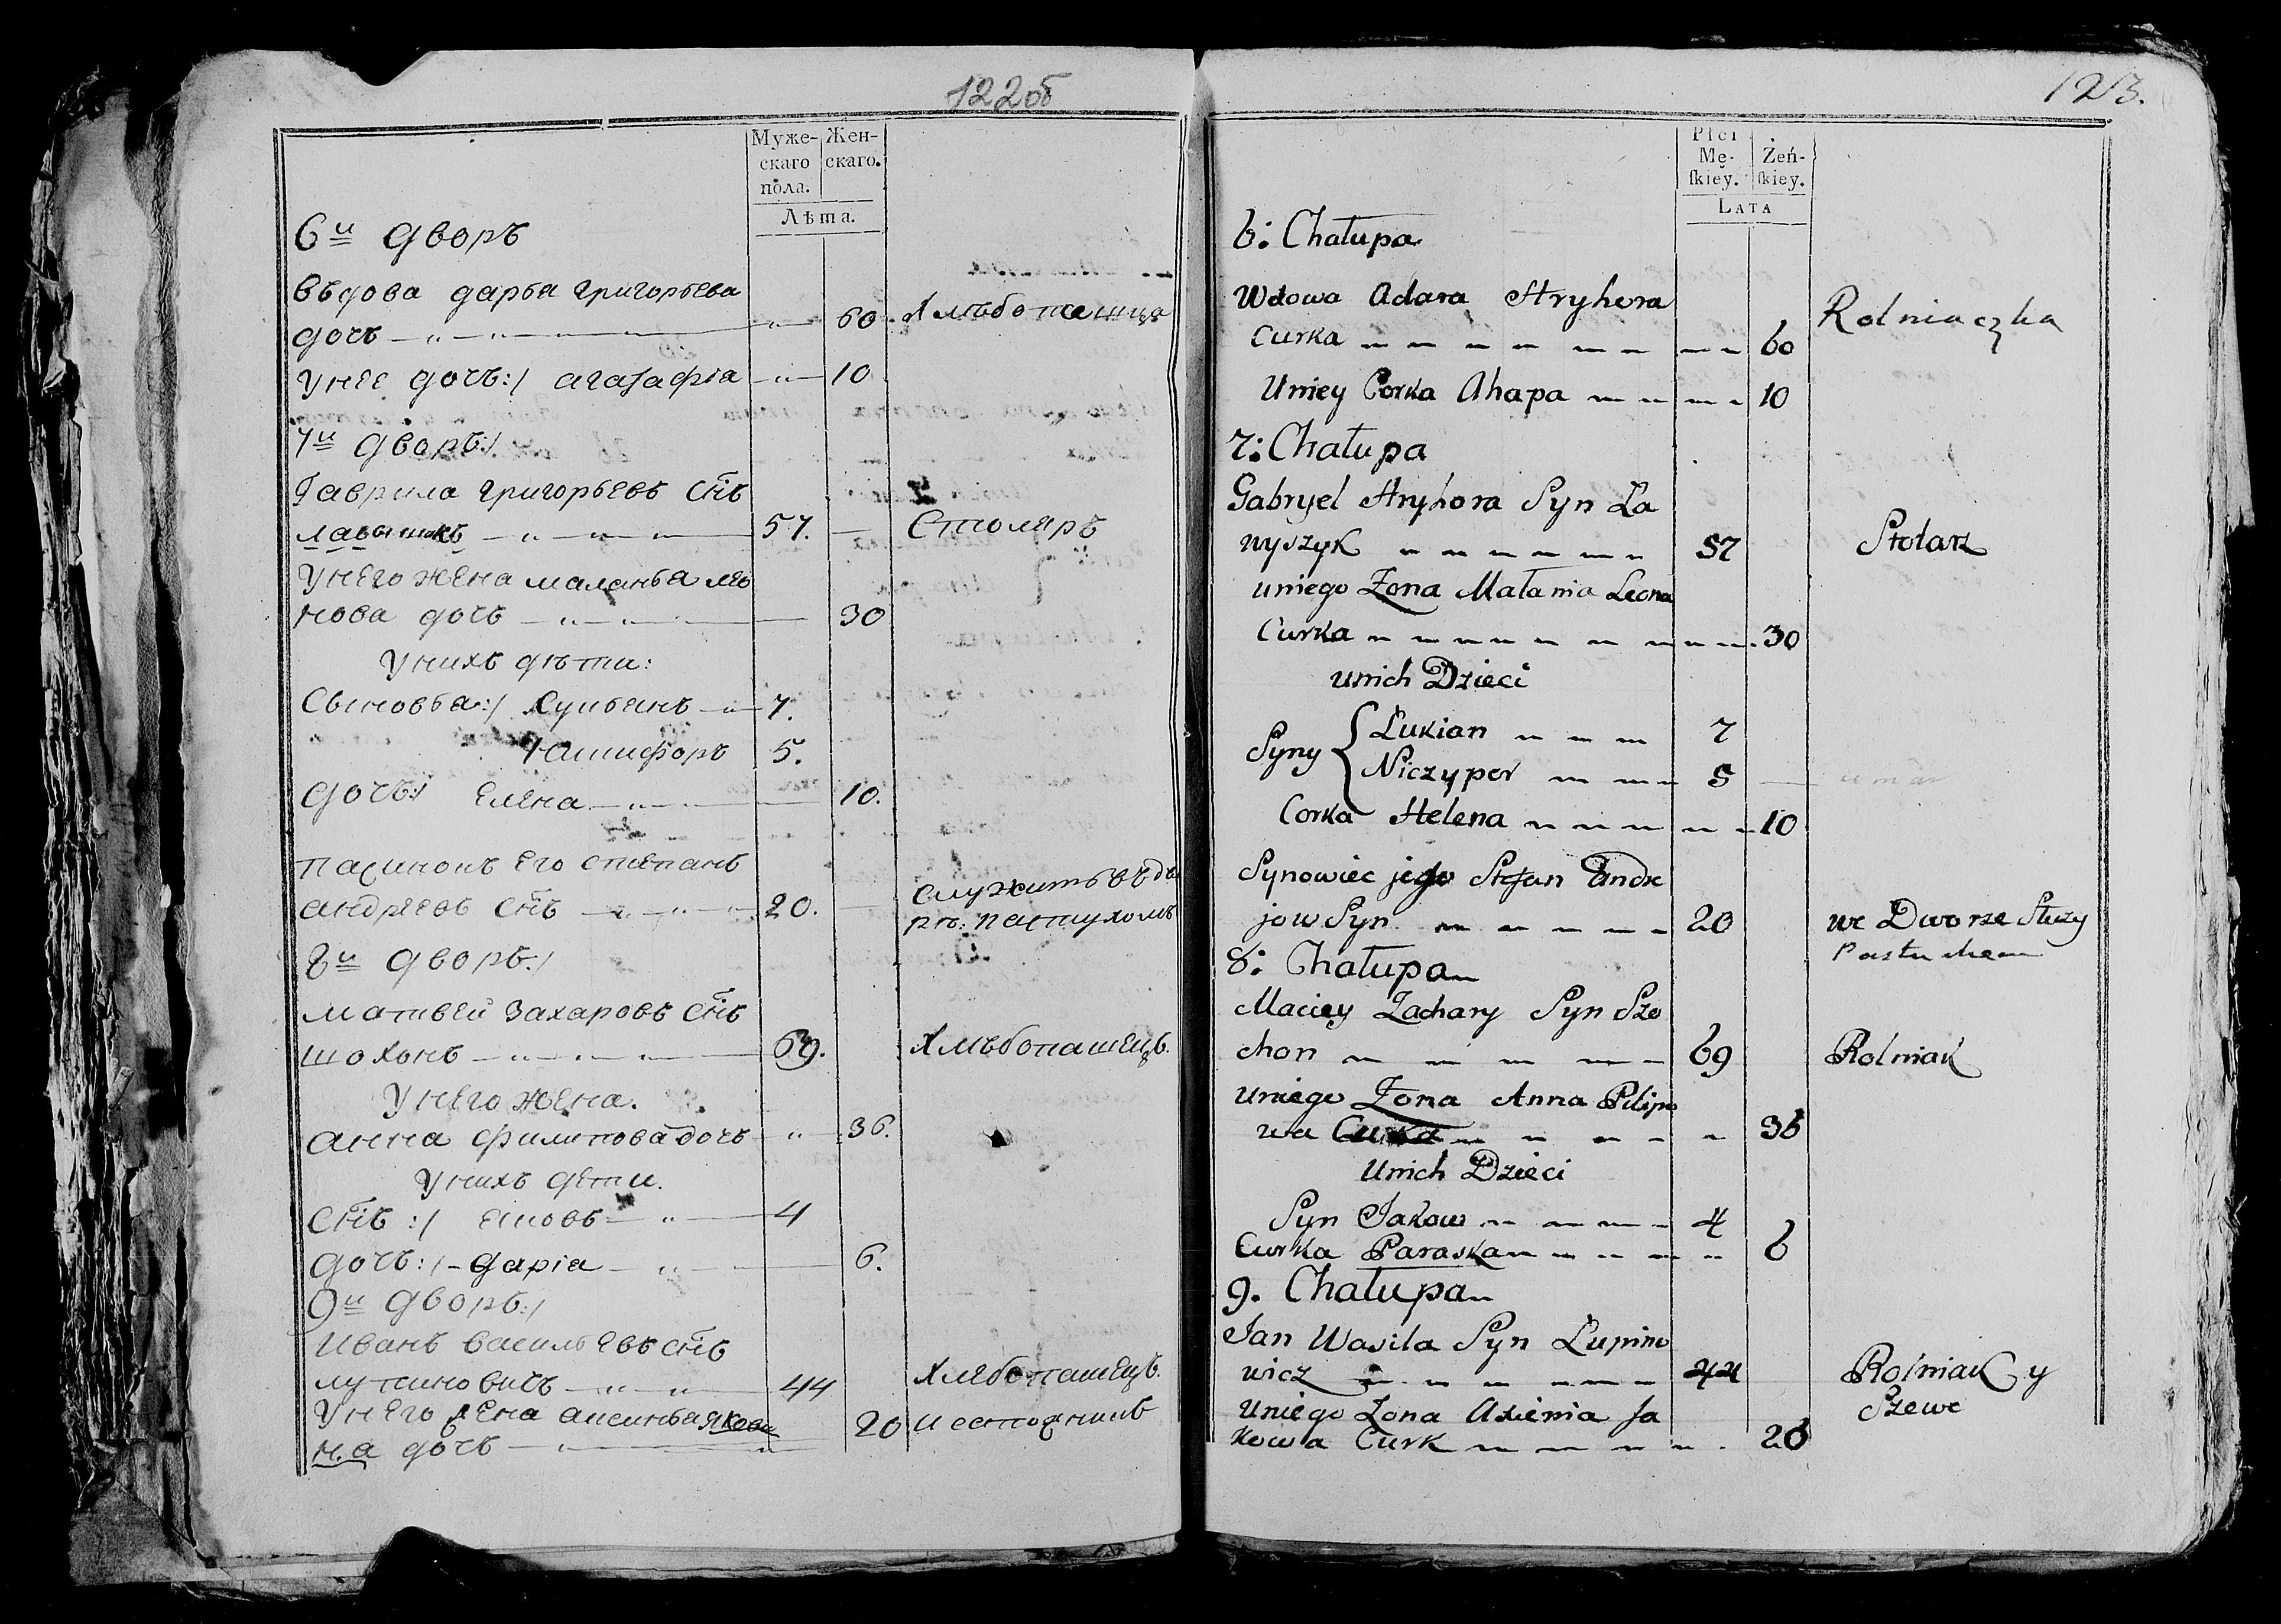 122об
Муже-
скаго
пола.
Жен-
скаго.
Лѣта.
6й дворъ
Въдова дарья григорьева
дочъ — „ — „ — „ 60. Хлѣбопашица
Унее дочъ:/ агафія — „ — 10
7й дворъ:/
Гаврила григорьевъ Снъ
лавышикъ — „ — 57. — Столяръ
Унего жена маланья лео
нова дочъ — „ — „ — 30
Унихъ дѣти:
Сыновья:/ Лукьянъ — „ — 7.
Ничифоръ 5.
дочъ:/ Елена — „ — 10.
Пасинокъ Его степанъ
андреевъ Снъ — „ — „ — 20. — служитъ въ дво
рѣ: пастухомъ
8й дворъ:/
матвѣй Захаровъ Снъ
шохонъ — „ — „ — 69. Хлѣбопашецъ.
Унего жена.
анна филипова дочъ „ 36.
Унихъ дети.
Снъ:/ яковъ — „ — 4
дочъ:/ — дарія — „ — 6.
9й дворъ:/
Иванъ васильевъ Снъ
лупиновичъ — „ — „ — 44 Хлебопашецъ.
Унего жена аксинья якова 20 и сапожникъ
н.а дочъ — „ —
123.
Płci
Mę-
skiey.
Żeń-
skiey.
LATA
6: Chałupa
Wdowa Adara Hryhora
Curka — — — — — — 60 Rolniaczka
Uniey Corka Ahapa — — — 10
7: Chałupa
Gabryel Hryhora Syn Ła
wyszyk — — — — — — 57 Stolarz
uniego Żona Małania Leona
Curka — — — — — — — — 30
unich Dzieci
Syny { Łukian — — — 7
Niczypor — — — 5
Corka Helena — — — — — 10
Synowiec jego Stefan Andre
jow Syn — — — — — 20 we Dworze Służy
Pastuchem
8: Chałupa
Maciey Zachary Syn Szo
chon — — — — — — 69 Rolniak
uniego Żona Anna Pilipo
wa Curka — — — — — 36
Unich Dzieci
Syn Jakow — — — — 4
Curka Paraska — — — — — 6
9. Chałupa
Jan Wasila Syn Łupino
wicz — — — — — — 44 Rolniak y
Uniego Żona Axienia Ja Szewc
kowa Curk — — — — — 26